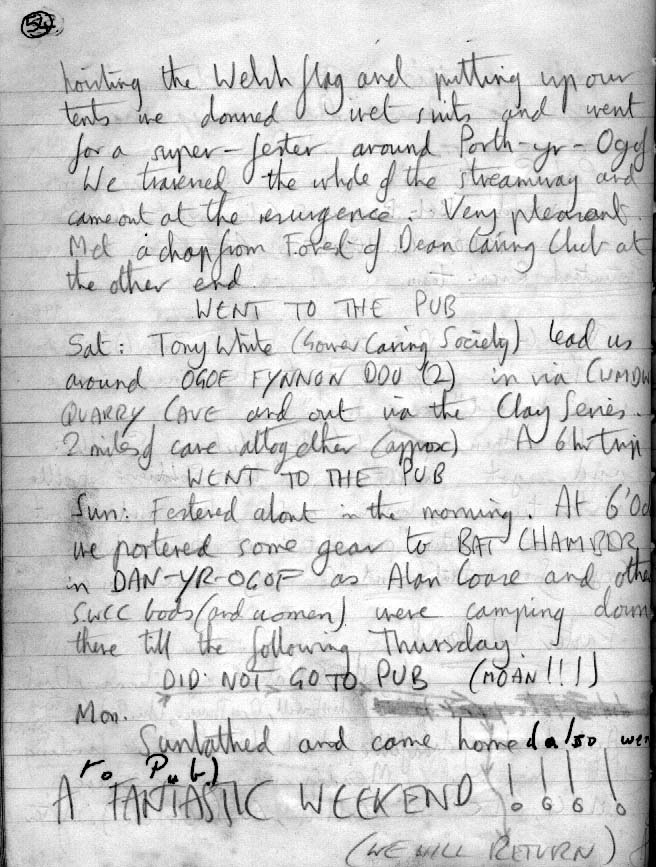 54
hoisting the Welsh flag and putting up our
tents we donned wet suits and went
for a super-fester around Porth-yr-Ogof
We traversed the whole of the streamway and
came out at the resurgence. Very pleasant.
Met a chap from Forest of Dean Caving Club at
the other end
WENT TO THE PUB
Sat: Tony White (Gower Caving Society) lead us
around OGOF FYNNON DDU (2) in via CWMDW
QUARRY CAVE and out via the Clay Series.
2 miles of cave altogether (approx) A 6hr trip
WENT TO THE PUB
Sun: Festered about in the morning. At 6'Oc
we portered some gear to BAT CHAMBER
in DAN-YR-OGOF as Alan Coase and other
SWCC bods (and women) were camping down
there till the following Thursday.
DID NOT GO TO PUB (MOAN!!!)
Mon.
Sunbathed and came home (also wen
to Pub)
A FANTASTIC WEEKEND !!!!
(WE WILL RETURN)